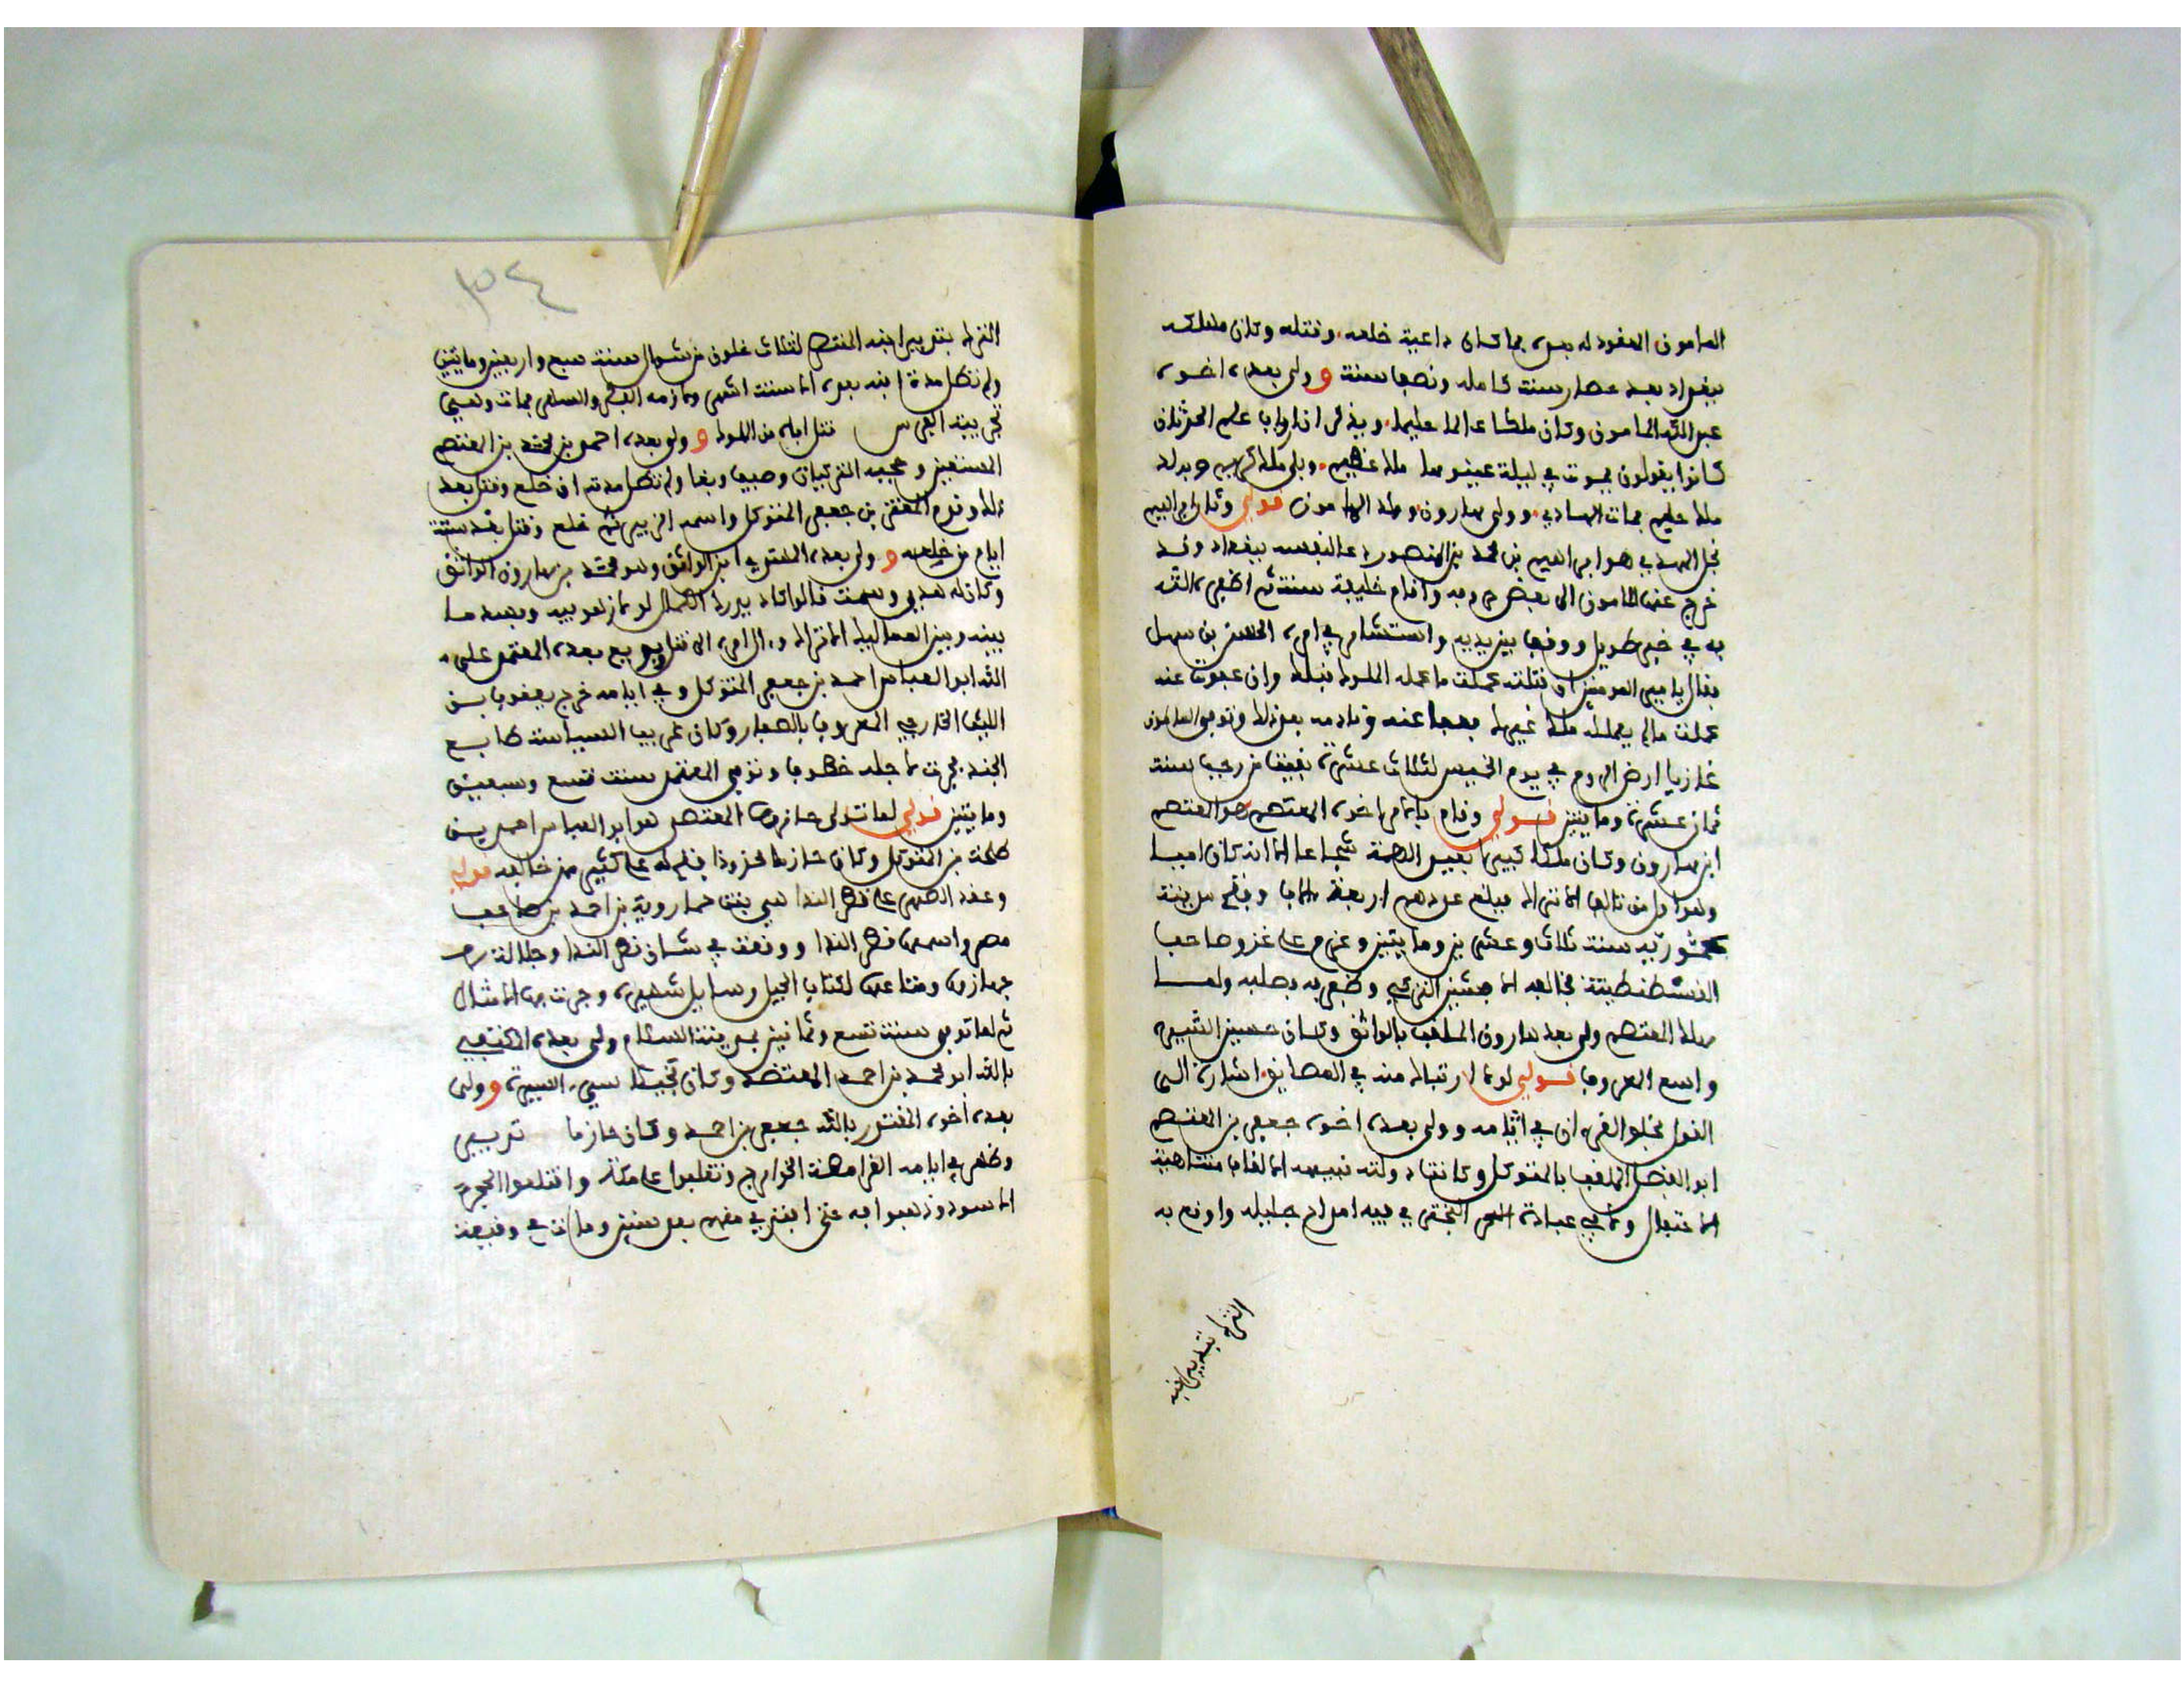 المامون المعقود له بعده بما كان داعية خلعه وقتله وكان ملكه
ببغداد بعد حصار سنة كاملة ونصف سنة و ولى بعده اخوه
عبد الله المامون وكان ملكا عالما حليما ويذكر ان ارباب علم الحدثان
كانوا يقولون يموت في ليلة عينوها ملك عظيم ويلي ملك كريم ويولد
ملك حليم فمات الهادي وولى هارون وولد المامون قولي وثار ابراهيم
نجل المهدي هو ابراهيم بن محمد بن المنصور دعا لنفسه ببغداد وقد
خرج عنها المامون الى بعض حروبه واقام خليفة سنة ثم اظفره الله
به في خبر طويل ووقف بين يديه واستشار في امره الحسن بن سهل
فقال يا امير المومنين ان قتلته عملت ما عمله الملوك قبلك وان عفوت عنه
عملت مالم يعمله ملك غيرك فعفا عنه ونادمه بعد ذلك وتوفي المامون
غازيا ارض الروم في يوم الخميس لثلاث عشرة بقيت من رجب سنة
ثمان عشرة وماتين قولي وقام بالامر اخوه المعتصم هو المعتصم
ابن هارون وكان ملكا كبيرا بعيد الهمة شجاعا الا انه كان اميا
وهو اول من تالف الاتراك فبلغ عددهم اربعة الاف وفتح مدينة
عمورية سنة ثلاث وعشرين وماتين وعزم على غزو صاحب
القسطنطينة فخالفه الافشين التركي وظفر به وصلبه ولما
هلك المعتصم ولى بعده هارون الملقب بالواثق وكان حسن السيرة
واسع المعروف قولي لو كان لارتباك منه في المضايق اشارة الى
القول بخلق القرءان في ايامه وولى بعده اخوه جعفر بن المعتصم
ابو الفضل الملقب بالمتوكل وكانت دولته نبيهة الالقاب متناهية
الاحتفال وكان في عبادة البحتري فيه امداح جليلة واوقع به
الترك بتدبير ابنه
الترك بتدبير ابنه المنتصر لثلاث خلون من شوال سنة سبع واربعين وماتين
ولم تطل مدة ابنه بعده الا ستة اشهر
تجريبة الفرس قتل اباه من الملوك و ولى بعده احمد بن محمد بن المعتصم
المستعين وحجبه التركيان وصيف وبغا ولم تطل مدته ان خلع وقتل بعد
ذلك وقدم المعتز بن جعفر المتوكل واسمه الزبير ثم خلع وقتل بعد ستة
ايام من خلعه و ولى بعده المهتدي ابن الواثق وهو محمد بن هارون الواثق
وكان له هدي وسمت قالوا كاد يدرك الكمال لو كان هو بيه وبعد ما
بينه وبين العما ليك الاتراك وءال امره الى قتل بويع بعده المعتمد على
الله ابو العباس احمد بن جعفر المتوكل وفي ايامه خرج يعقوب بن
الليث الخارجي المعروف بالصفار وكان غريب السياسة طايع
الجند جرت لاجله خطوب وتوفي المعتمد سنة تسع وسبعين
وماتين قولي لما تولى حازها المعتضد هو ابو العباس احمد بن
طلحة بن المتوكل وكان حازما فظهر له على كثير ممن خالفه قولي
وعقد الصهر على قطر الندا هي بنت خمارويه بن احمد بن صاحب
مصر واسمها قطر الندا ووقعت في شان قطر الندا وجلالة
جهازها ومتاعها لكتاب الجيل رسايل شهيرة وجرت بها الامثال
ثم لما توفي سنة تسع وثمانين بمدينة السلام ولى بعده المكتفي
بالله ابو محمد بن احمد المعتضد وكان نجيبا سيء السيرة و ولى
بعده اخوه المقتدر بالله جعفر بن احمد وكان حازما
وظهر في ايامه القرامطة الخوارج وتغلبوا على مكة واقتلعوا الحجر
الاسود وذهبوا به